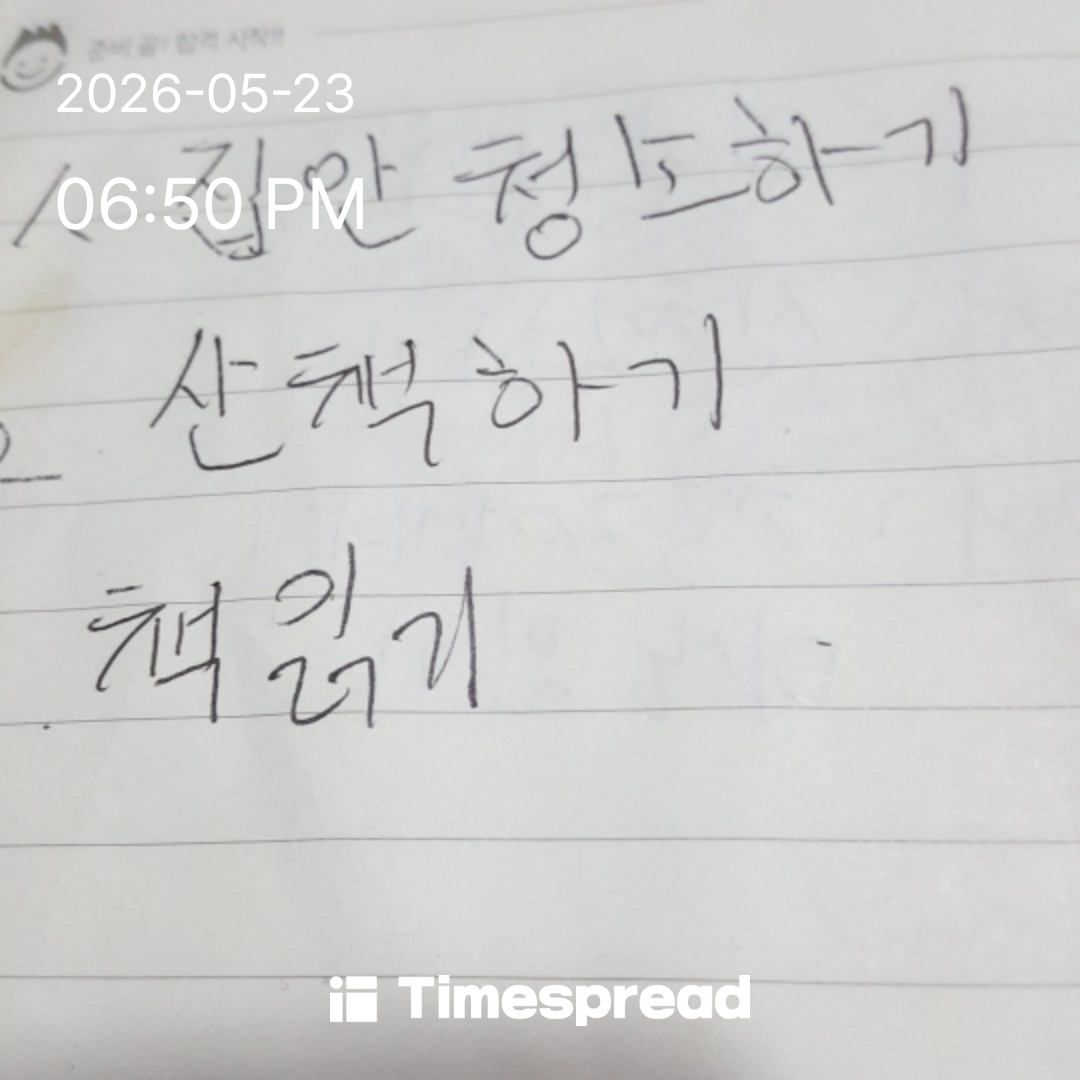 준비 끝! 합격 시작!!
2026-05-23
06:50 PM
1. 집안 청소하기
2 산책하기
책읽기
Timespread